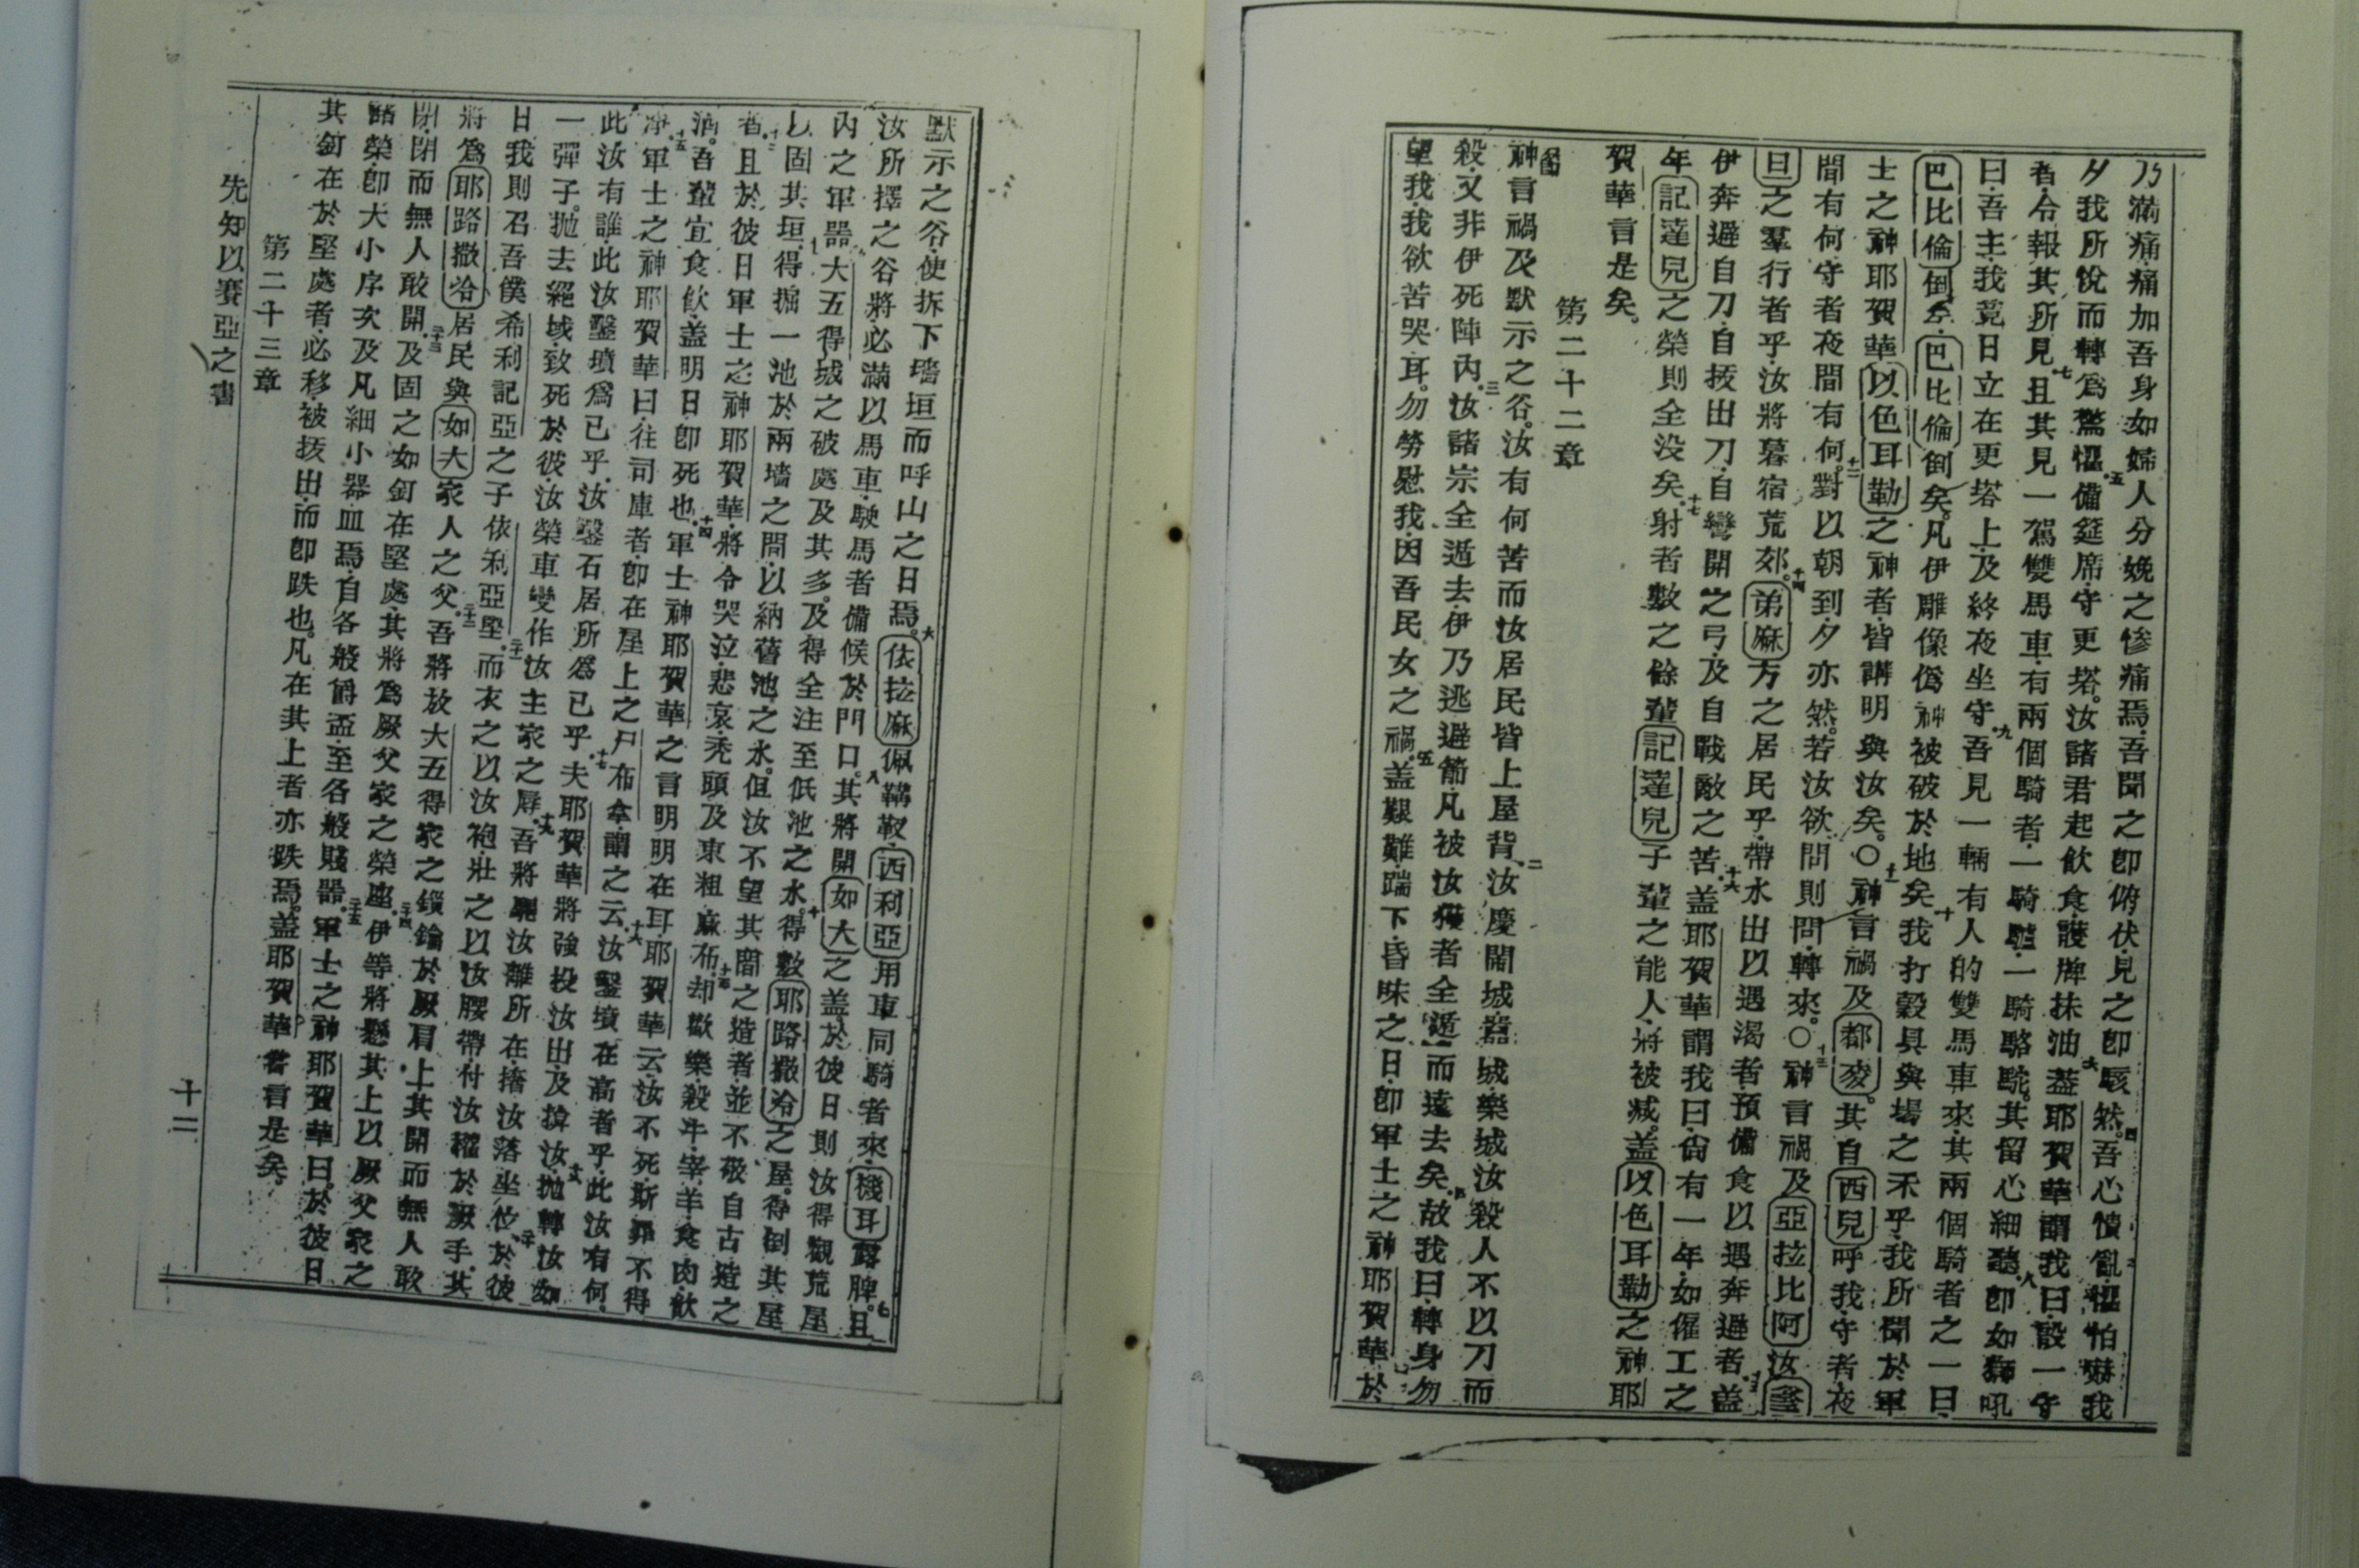 乃滿痛痛加吾身如婦人分娩之慘痛焉吾聞之卽俯伏見之卽駭然四吾心憒亂懼怕嚇我
夕我所悅而轉爲驚懼五備筵席守更塔汝諸君起飲食護牌抹油蓋六耶賀華謂我曰設一守
者令報其所見七且其見一駕雙馬車有兩個騎者一騎驢一騎駱駝其留心細聽八卽如獅吼
曰吾主我竟日立在更塔上及終夜坐守九吾見一輛有人的雙馬車來其兩個騎者之一曰
巴比倫倒矣巴比倫倒矣凡伊雕像僞神被破於地矣十我打穀具與場之禾乎我所聞於軍
士之神耶賀華以色耳勒之神者皆講明與汝矣〇十一神言禍及都麥其自西兒呼我守者夜
間有何守者夜間有何十二對以朝到夕亦然若汝欲問則問轉來〇十三神言禍及亞拉比阿汝
旦之羣行者乎汝將暮宿荒郊十四第麻方之居民乎帶水出以遇渴者預備食以遇奔避者十五盖
伊奔避自刀自拔出刀自彎開之弓及自戰敵之苦十六盖耶賀華謂我曰尙有一年如僱工之
年記達兒之榮則全没矣十七射者數之餘輩記達兒子輩之能人將被减盖以色耳勒之神耶
賀華言是矣
第二十二章
神言禍及默示之谷汝有何苦而汝居民皆上屋背二汝慶鬧城樂城汝殺人不以刀而
殺又非伊死陣內三汝諸宗全遁去伊乃逃避箭凡被汝獲者全遁而遠去矣四故我曰轉身勿
望我我欲苦哭耳勿勞慰我因吾民女之禍五盖艱難踹下昏昧之日卽軍士之神耶賀華於
默示之谷使拆下墻垣而呼山之日焉六依拉麻佩鞲靫西利亞用車同騎者來機耳露脾七且
汝所擇之谷將必滿以馬車駛馬者備候於門口八其將開如大之盖於彼日則汝得觀荒屋
內之軍器九大五得城之破處及其多及得全注至低池之水十得數耶路撒冷之屋得倒其屋
以固其垣十一得掘一池於兩墻之間以納舊池之水但汝不望其間之造者並不敬自古造之
者十二且於彼日軍士之神耶賀華將令哭泣悲哀禿頭及束粗麻布十三却歡樂殺牛宰羊食肉飲
酒吾輩宜食飲盖明日卽死也十四軍士神耶賀華之言明明在耳耶賀華云汝不死斯罪不得
淨十五軍士之神耶賀華曰往司庫者卽在屋上之尸布拿謂之云十六汝鑿墳在高者乎此汝有何
此汝有誰此汝鑿墳爲已乎汝鑿石居所爲已乎十七夫耶賀華將強投汝出及揜汝十八抛轉汝如
一彈子抛去絕域致死於彼汝榮車變作汝主家之辱十九吾將驅汝離所在撦汝落坐位二十於彼
日我則召吾僕希利記亞之子依利亞堅二十一而衣之以汝袍壯之以汝腰帶付汝權於厥手其
將爲耶路撒冷居民與如大家人之父二十二吾將放大五得家之鎖鑰於厥肩上其開而無人敢
閉閉而無人敢開二十三及固之如釘在堅處其將爲厥父家之榮座二十四伊等將懸其上以厥父家之
諸榮卽大小序次及凡細小器皿焉自各般爵盃至各般賤器二十五軍士之神耶賀華曰於彼日
其釘在於堅處者必移被拔出而卽跌也凡在其上者亦跌焉盖耶賀華嘗言是矣
第二十三章
先知以賽亞之書
十二